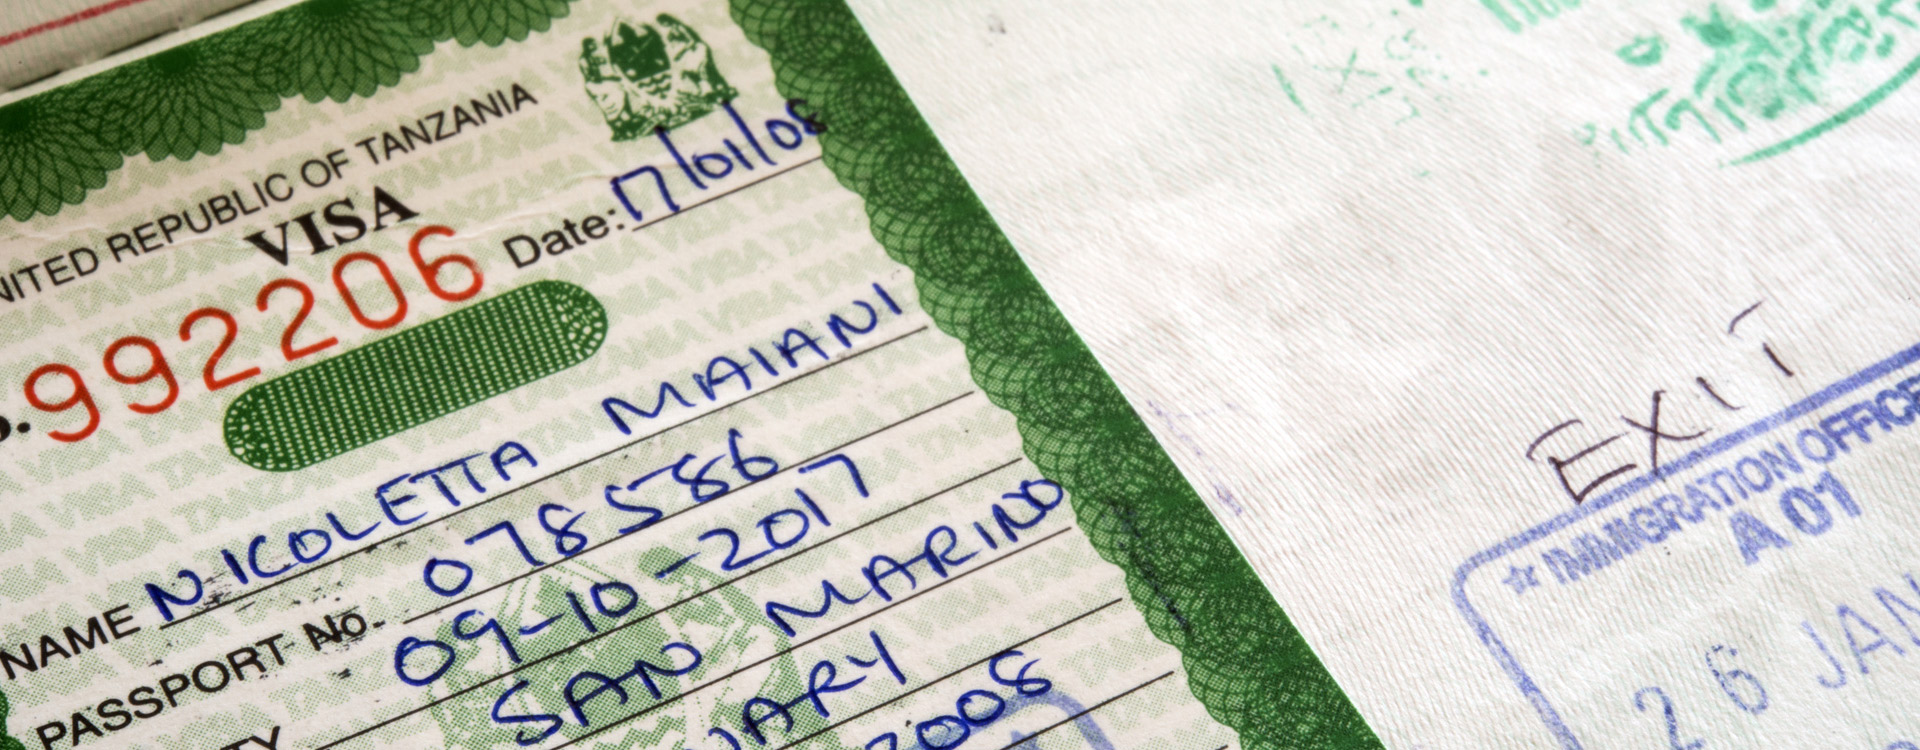 UNITED REPUBLIC OF TANZANIA
VISA
992206
Date: 17/01/08
NAME NICOLETTA MAIANI
PASSPORT No. 078586
09-10-2017
SAN MARINO
2008
EXIT
☆ IMMIGRATION OFFICE
A 01
26 JAN